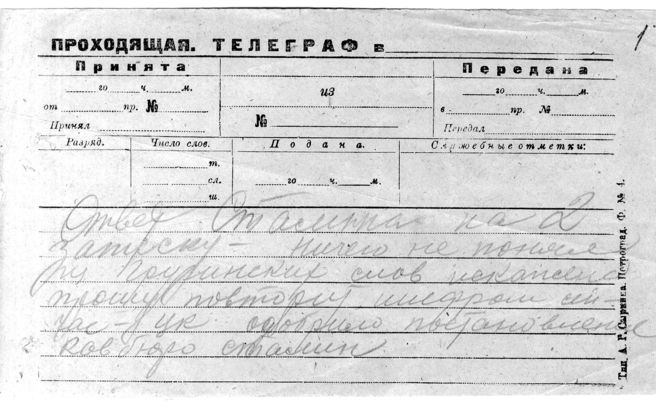 1
ПРОХОДЯЩАЯ. ТЕЛЕГРАФ в
Принята
го ч. м.
от пр. №
Принял
из
№
Передана
го ч. м.
в пр. №
Передал
Разряд.
Число слов.
т.
сл.
ш.
Подана.
го ч. м.
Служебные отметки:
Ответ Сталина на 2
записку - ничего не понял
из слов искажена
прошу повторит шифром
Цк одобрило постановление
кавбюро сталин
Тип. А. Г. Сыркина. Петроград. Ф. № 4.